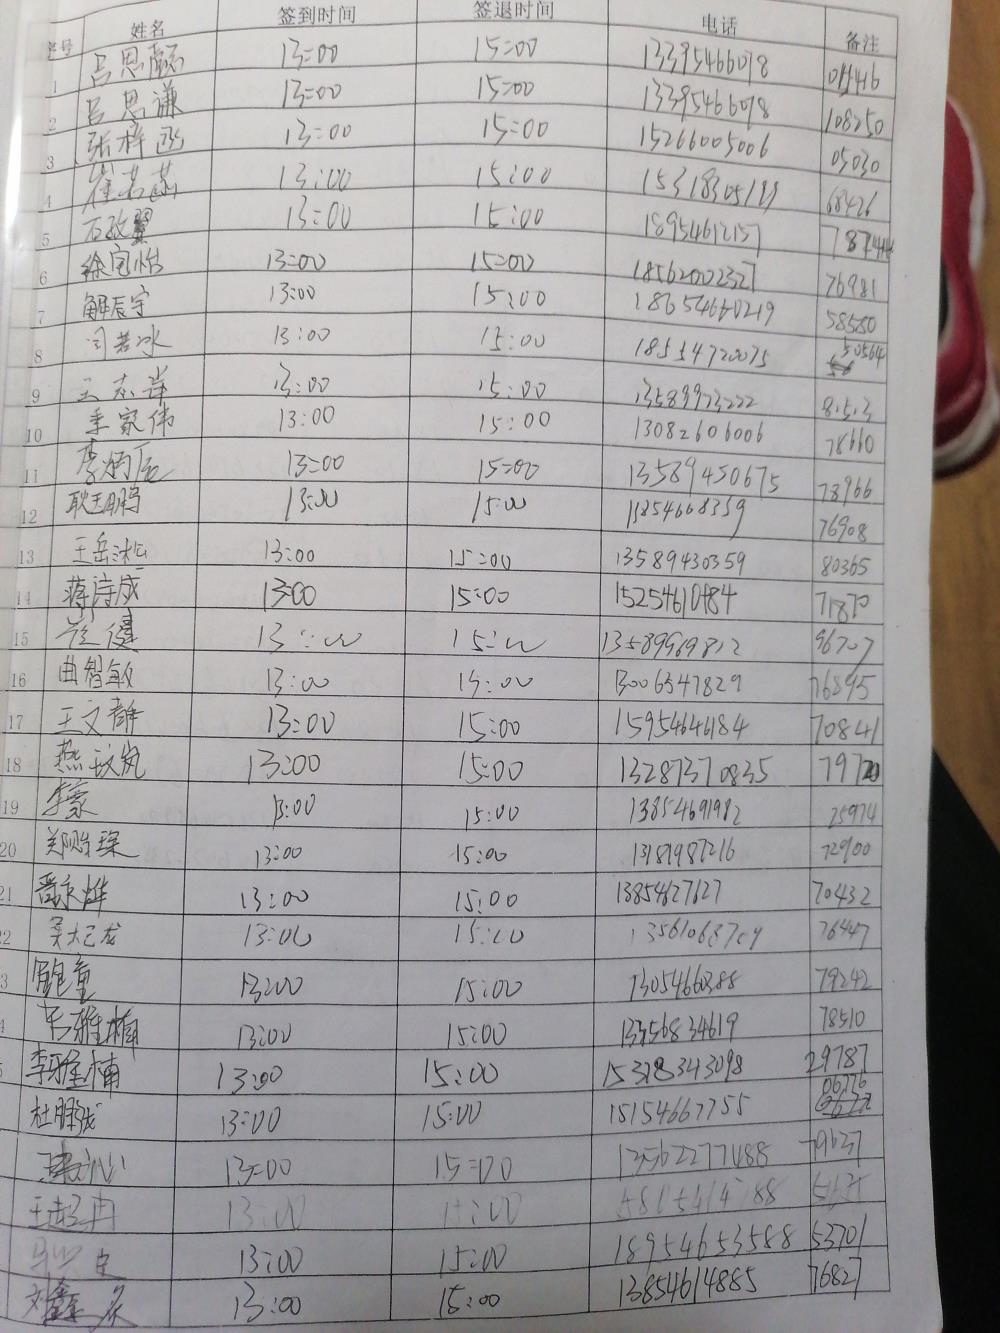 序号 姓名 签到时间 签退时间 电话 备注
1 吕思懿 13:00 15:00 13395466078
2 吕思谦 13:00 15:00 13395466098 108250
3 张梓函 13:00 15:00 15266005006 05030
4 崔若菡 13:00 15:00 68426
5 13:00 15:00 18954612157
6 徐宛怡 13:00 15:00 18562002327 76981
7 解辰宇 13:00 15:00 18654660219 58580
8 闫若冰 13:00 15:00 18554720075 50564
9 王志萍 13:00 15:00 13589973222 8.5.3
10 季家伟 13:00 15:00 13082606006 78660
11 13:00 15:00 13589450675 78966
12 耿玉鹏 13:00 15:00 15254608359 76908
13 王岳淞 13:00 15:00 13589430359 80365
14 蒋诗成 13:00 15:00 15254610484 71870
15 崔健 13:00 15:00 13589969812 96707
16 曲智敏 13:00 15:00 13006547829 76895
17 王文静 13:00 15:00 15954646184 70841
18 燕玟岚 13:00 15:00 13287370835 79720
19 李蒙 13:00 15:00 13854691982 25974
20 郑贻琛 13:00 15:00 13181987216 72900
21 13:00 15:00 13854627127 70432
22 13:00 15:00 13561068709 76447
3 鲍童 13:00 15:00 13054660388 79242
4 吕雅楠 13:00 15:00 13356834619 78510
5 李雅楠 13:00 15:00 15318343098 29787
杜鹏成 13:00 15:00 15154667755 06776
13:00 15:00 13562277488 79637
王超冉 13:00 15:00
13:00 15:00 18954653588 53701
刘鑫 13:00 15:00 13854614885 76827